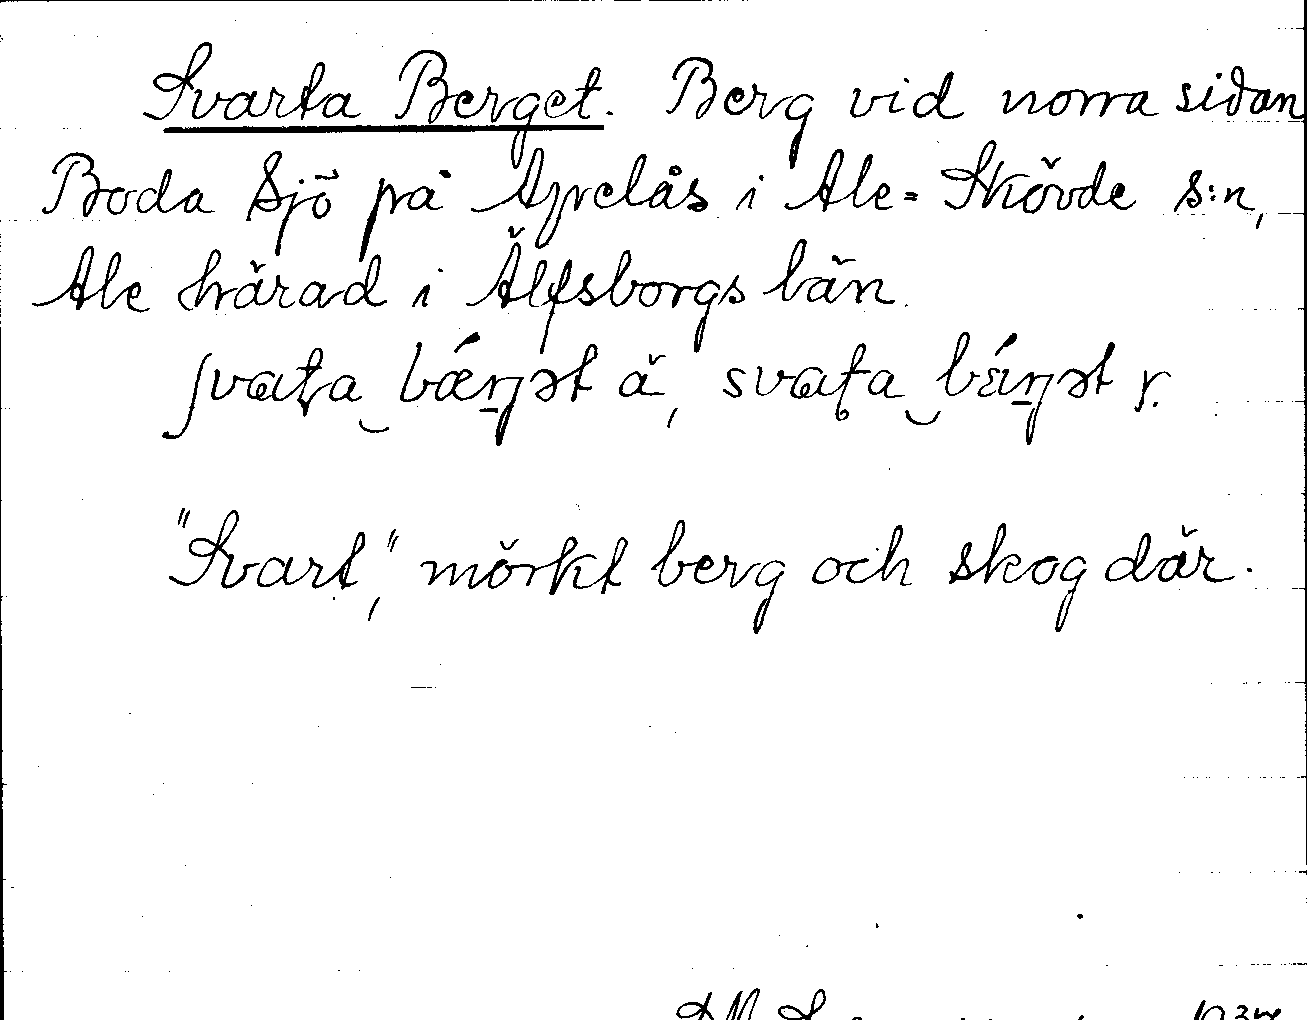 Svarta Berget. Berg vid norra sidan
Boda Sjö på Aprelås i Ale-Skövde s:n,
Ale härad i Älfsborgs län.
ʃvaʈa‿bǽŋət ä, svaʈa‿bɛ́ŋət r.
"Svart," mörkt berg och skog där.